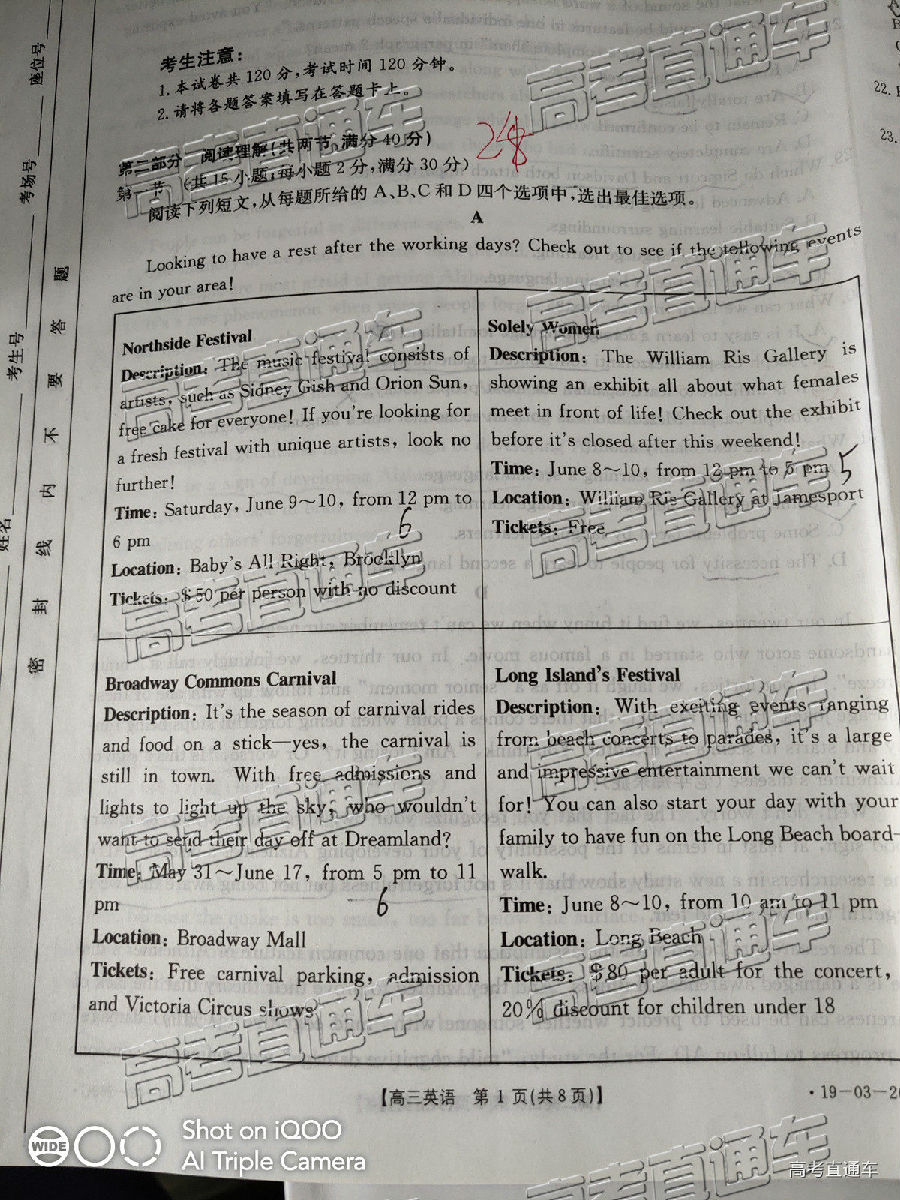 座位号
考场号
考生号
姓名
密 封 线 内 不 要 答 题
考生注意：
1. 本试卷共120分，考试时间120分钟。
2. 请将各题答案填写在答题卡上。
第二部分 阅读理解(共两节，满分40分)
28
第一节 (共15小题；每小题2分，满分30分)
阅读下列短文，从每题所给的A、B、C和D四个选项中，选出最佳选项。
A
Looking to have a rest after the working days? Check out to see if the following events
are in your area!
Northside Festival
Description: The music festival consists of
artists, such as Sidney Gish and Orion Sun,
free cake for everyone! If you're looking for
a fresh festival with unique artists, look no
further!
Time: Saturday, June 9～10, from 12 pm to
6 pm
6
Location: Baby's All Right, Brocklyn
Tickets: $50 per person with no discount
Solely Women
Description: The William Ris Gallery is
showing an exhibit all about what females
meet in front of life! Check out the exhibit
before it's closed after this weekend!
Time: June 8～10, from 12 pm to 5 pm
5
Location: William Ris Gallery at Jamesport
Tickets: Free
Broadway Commons Carnival
Description: It's the season of carnival rides
and food on a stick—yes, the carnival is
still in town. With free admissions and
lights to light up the sky, who wouldn't
want to send their day off at Dreamland?
Time: May 31～June 17, from 5 pm to 11
pm
6
Location: Broadway Mall
Tickets: Free carnival parking, admission
and Victoria Circus shows
Long Island's Festival
Description: With exciting events ranging
from beach concerts to parades, it's a large
and impressive entertainment we can't wait
for! You can also start your day with your
family to have fun on the Long Beach board-
walk.
Time: June 8～10, from 10 am to 11 pm
Location: Long Beach
Tickets: $80 per adult for the concert,
20% discount for children under 18
【高三英语 第1页(共8页)】
·19-03-2
22.
23.
高考直通车
WIDE
Shot on iQOO
AI Triple Camera
高考直通车